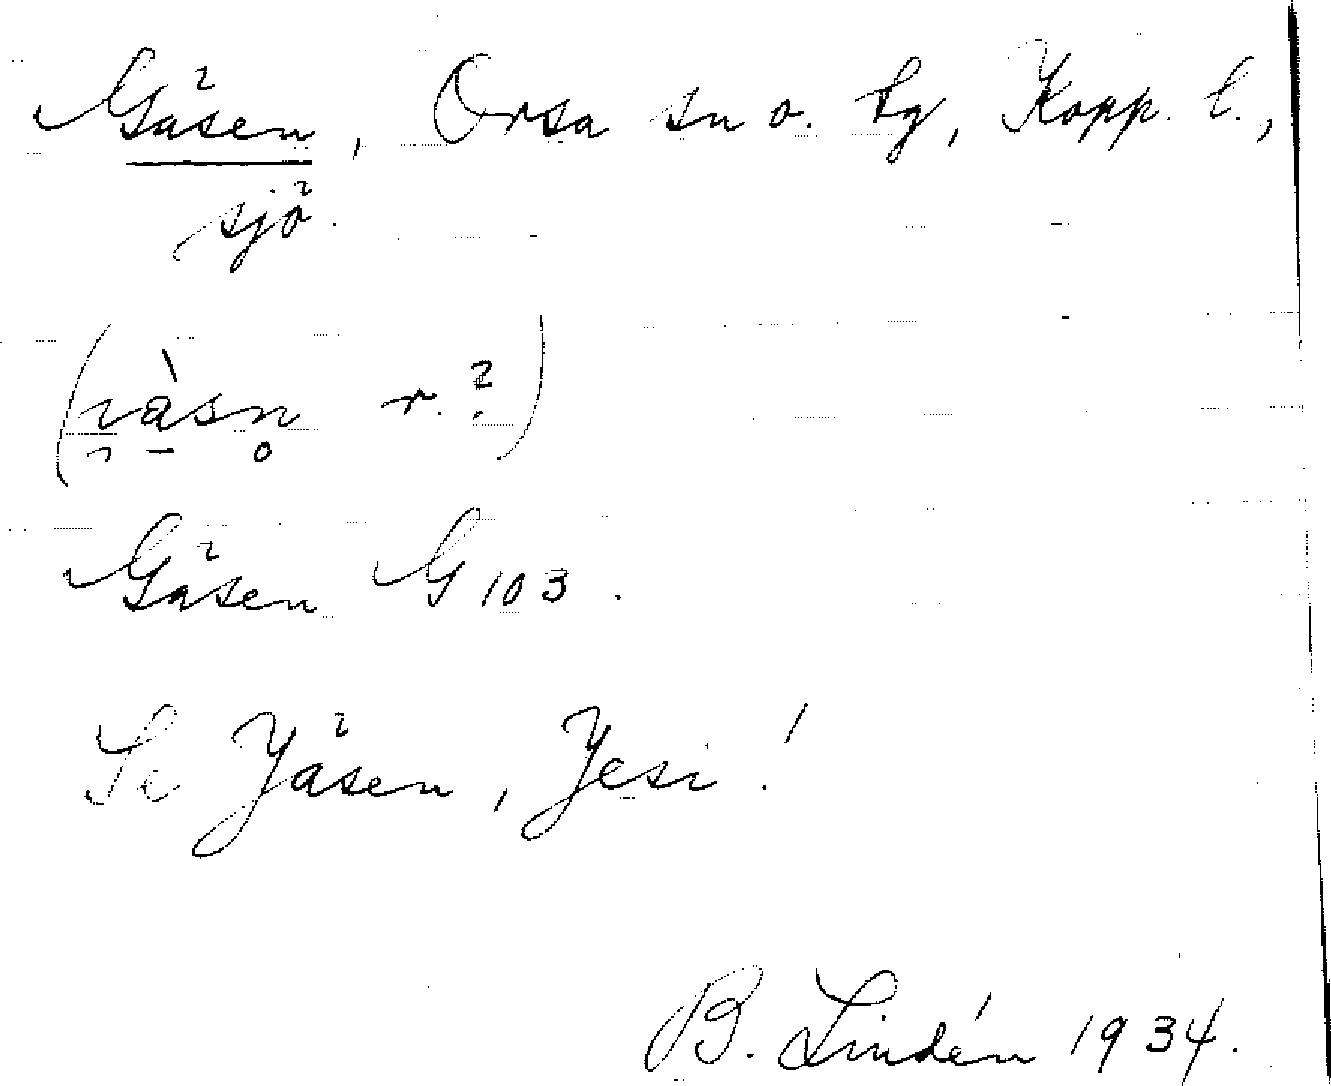 Gåsen, Orsa sn o. tg, Kopp. l.,
sjö.
r.?)
Gåsen G 103.
Se Jåsen, Jesi!
B. Lindén 1934.